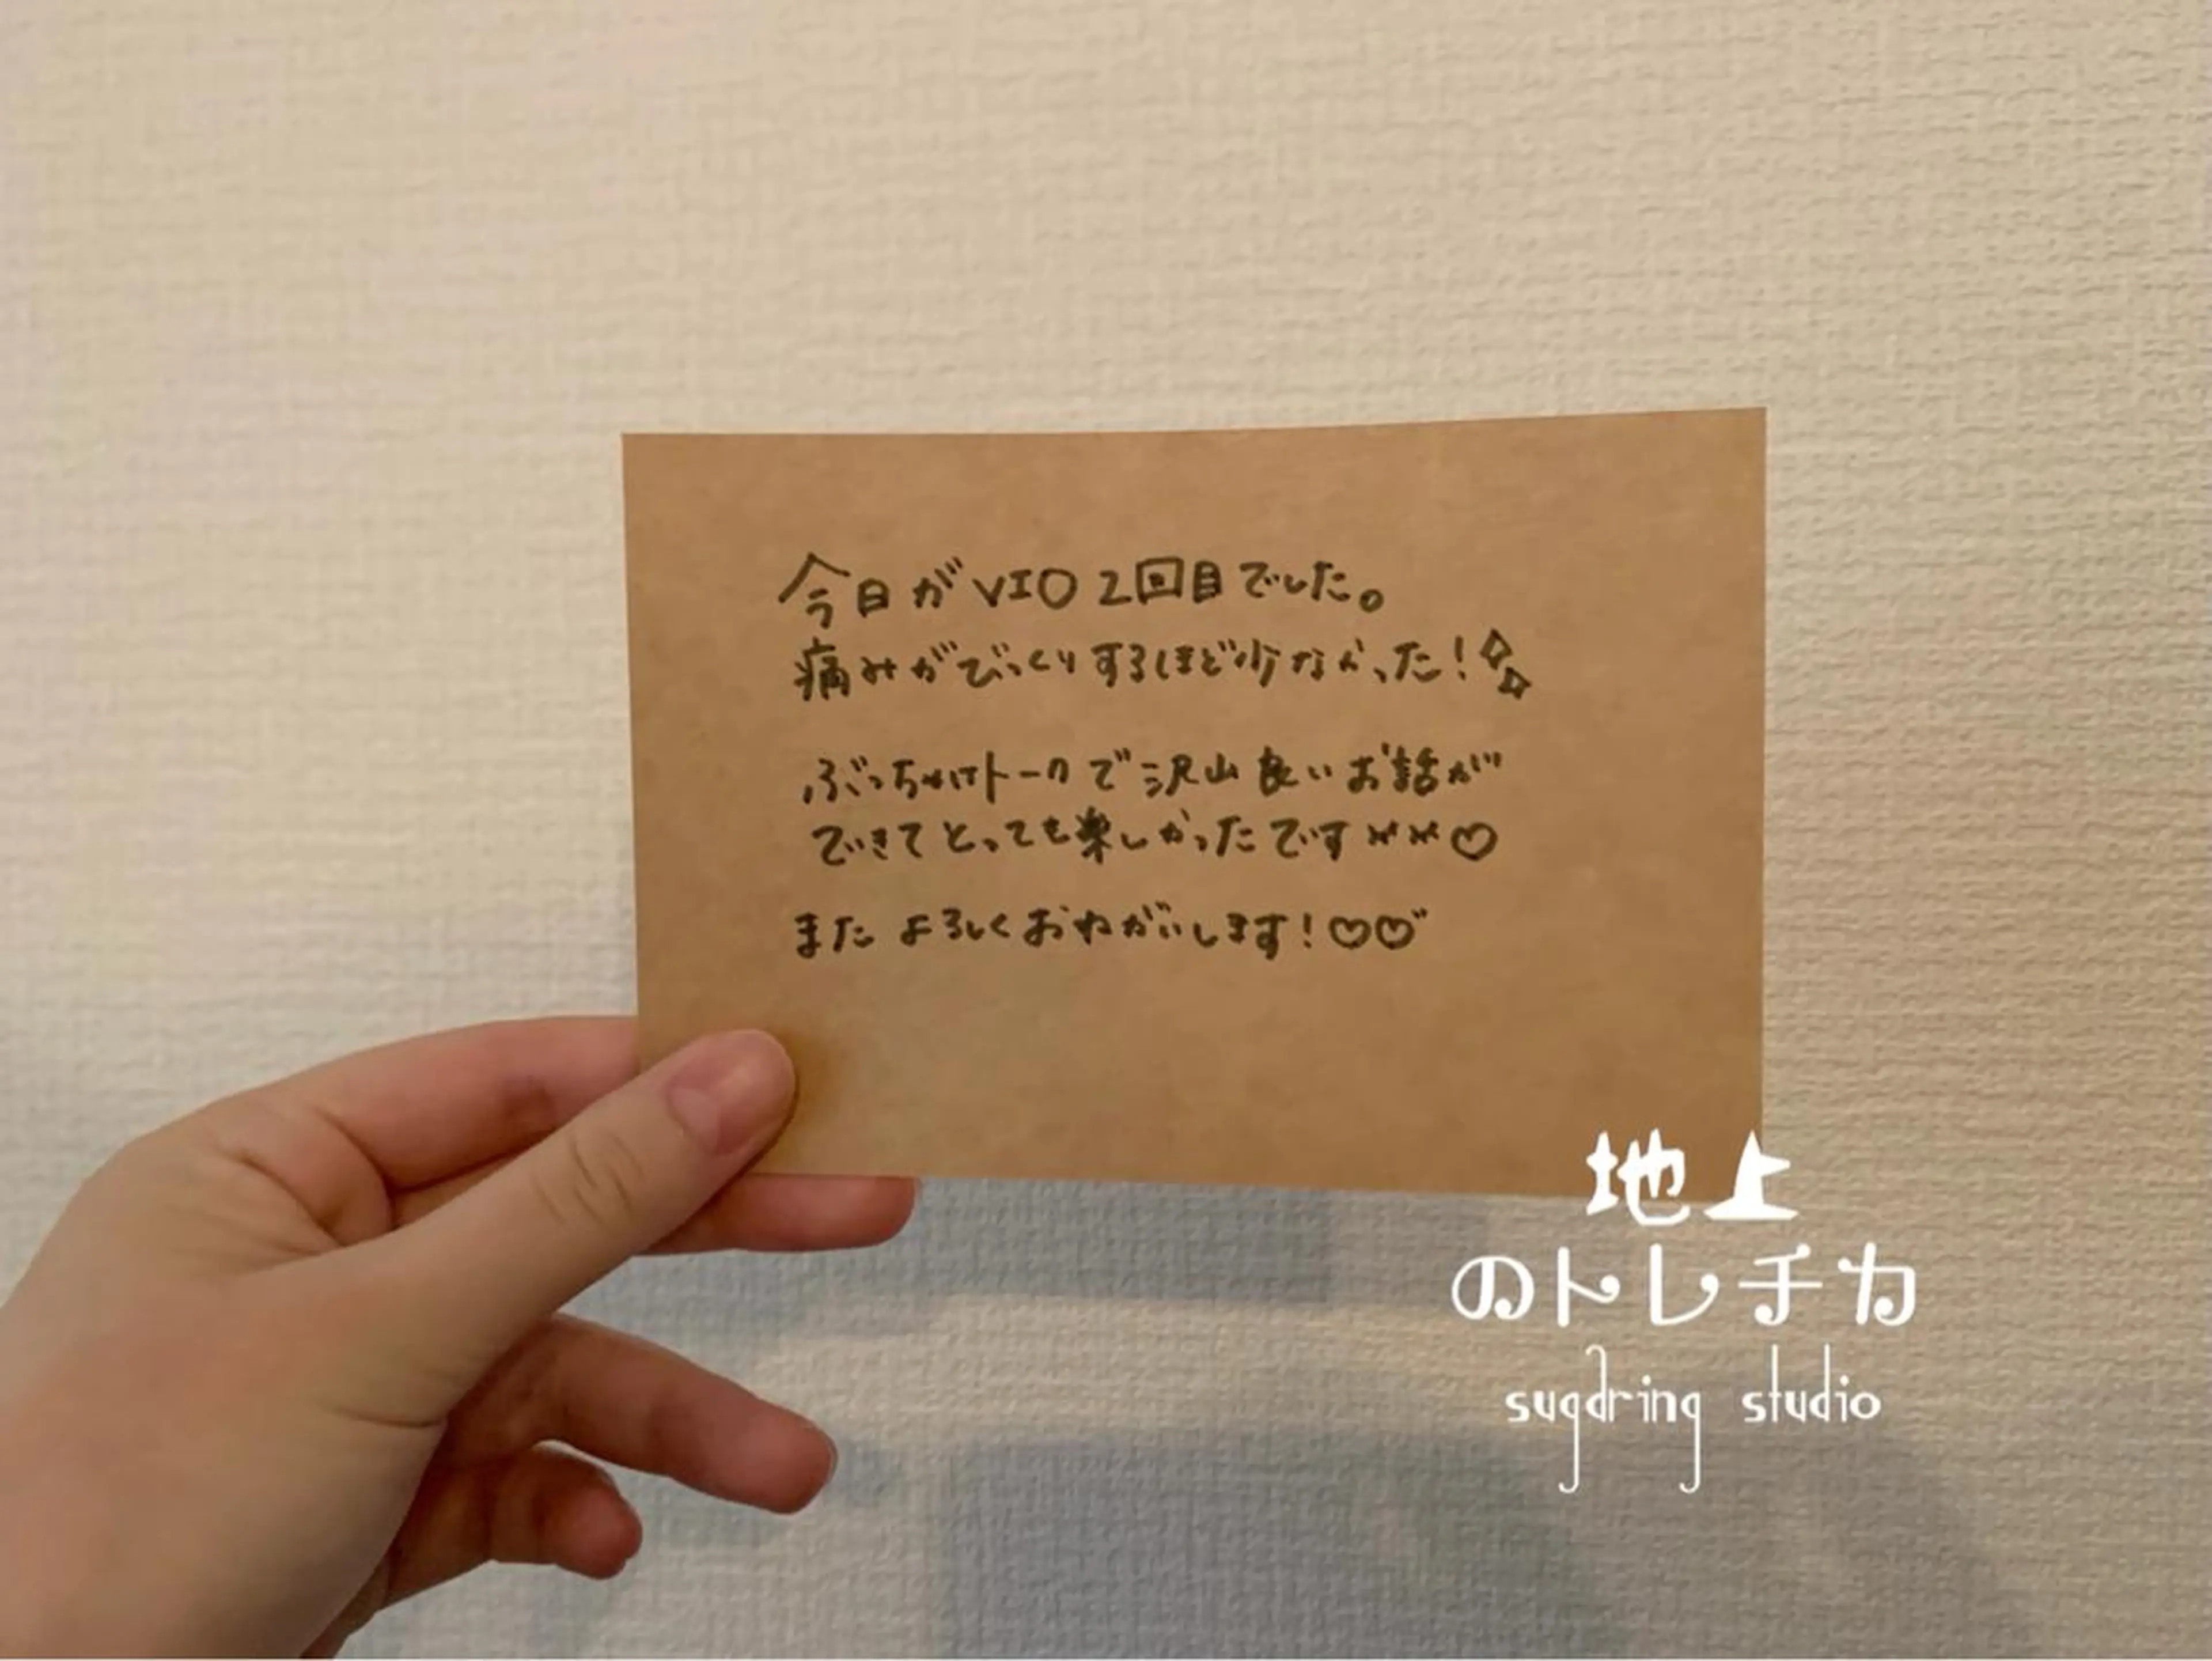 今日がVIO2回目でした。
痛みがびっくりするほど少なかった！
ぶっちゃけトークで沢山良いお話が
できてとっても楽しかったです♡
またよろしくおねがいします！♡♡
地上
のトレチカ
sugdring studio